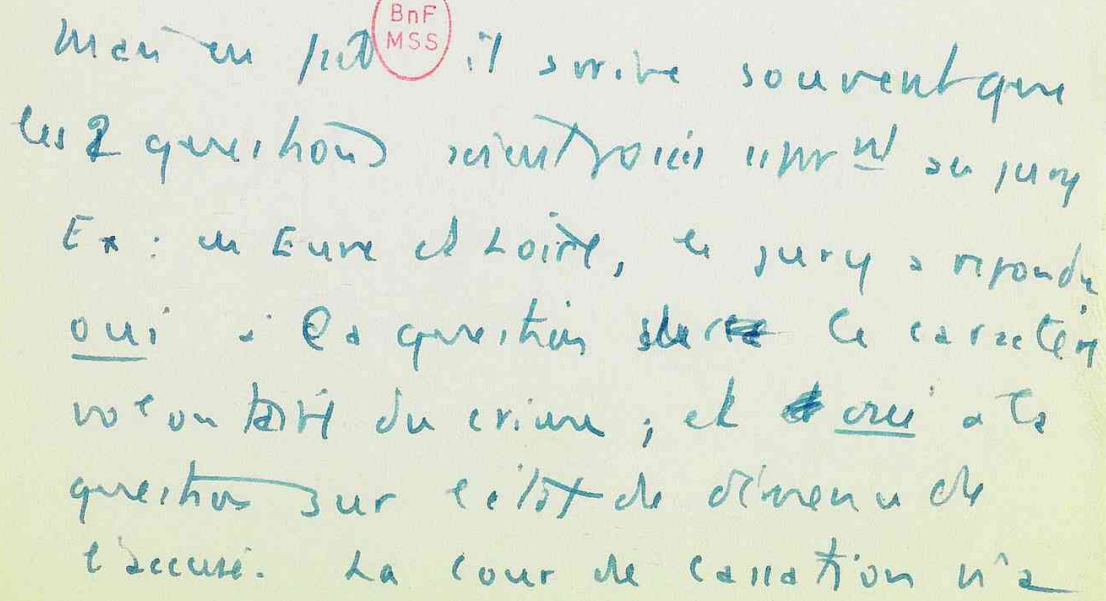 BnF
MSS
Mais en fait il arrive souvent que
les 2 questions soient posées sépar nt au jury
Ex : en Eure et Loire, le jury a répondu
oui à la question sur le caractère
volontaire du crime ; et oui à la
question sur l'état de démence de
l'accusé. La Cour de Cassation n'a